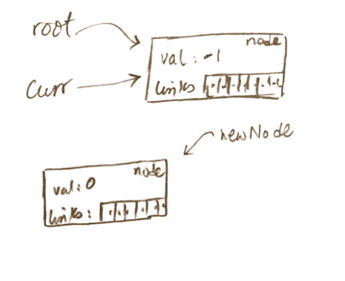 root
node
val: -1
curr
links
newNode
node
val: 0
links: